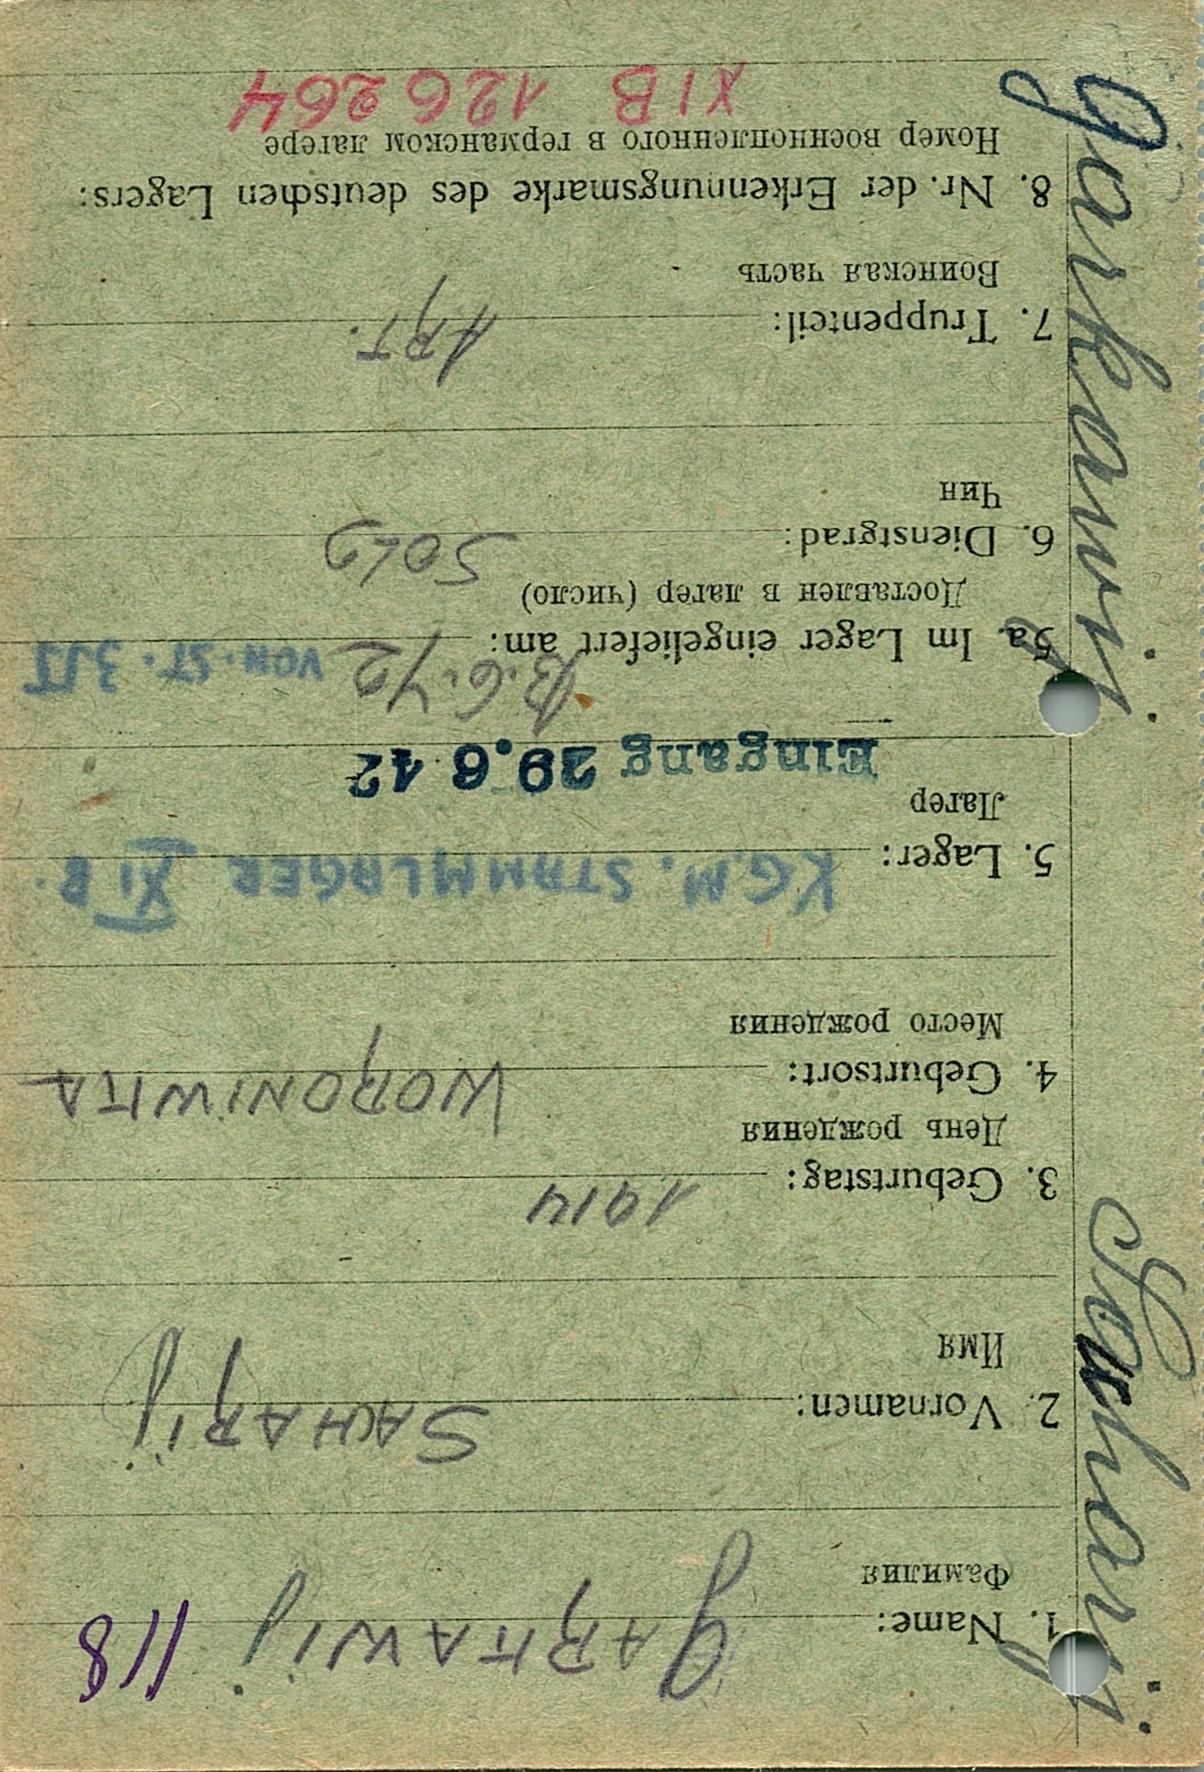 118
1. Name: GARKAWIJ
Фамилия
2. Vornamen: SACHARIJ
Имя
3. Geburtstag: 1914
День рождения
4. Geburtsort: WORONIWKA
Место рождения
5. Lager: KGM. STAMMLAGER XI B.
Лагерь
Eingang 29.6.42
5a. Im Lager eingeliefert am: 13.6.42 VON. ST. 315
Доставлен в лагерь (число)
6. Dienstgrad: SOLD
Чин
7. Truppenteil: ART.
Воинская часть
8. Nr. der Erkennungsmarke des deutschen Lagers:
Номер военнопленного в германском лагере
XI B 126264
Garkawij
Sacharij